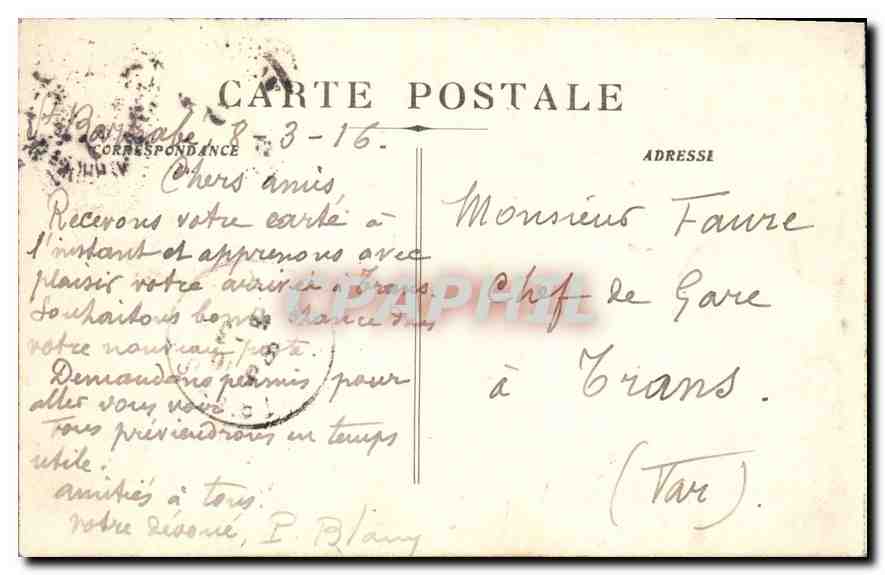 CARTE POSTALE
St Barnabé, 8-3-16.
CORRESPONDANCE
Chers amis,
Recevons votre carte à
l'instant et apprenons avec
plaisir votre arrivée à Trans.
Souhaitons bonne chance dans
votre nouveau poste.
Demandons permis pour
aller vous voir.
Vous préviendrons en temps
utile.
amitiés à tous.
votre dévoué, P. Blanc
ADRESSE
Monsieur Faure
Chef de Gare
à Trans.
(Var).
CPAPHIL